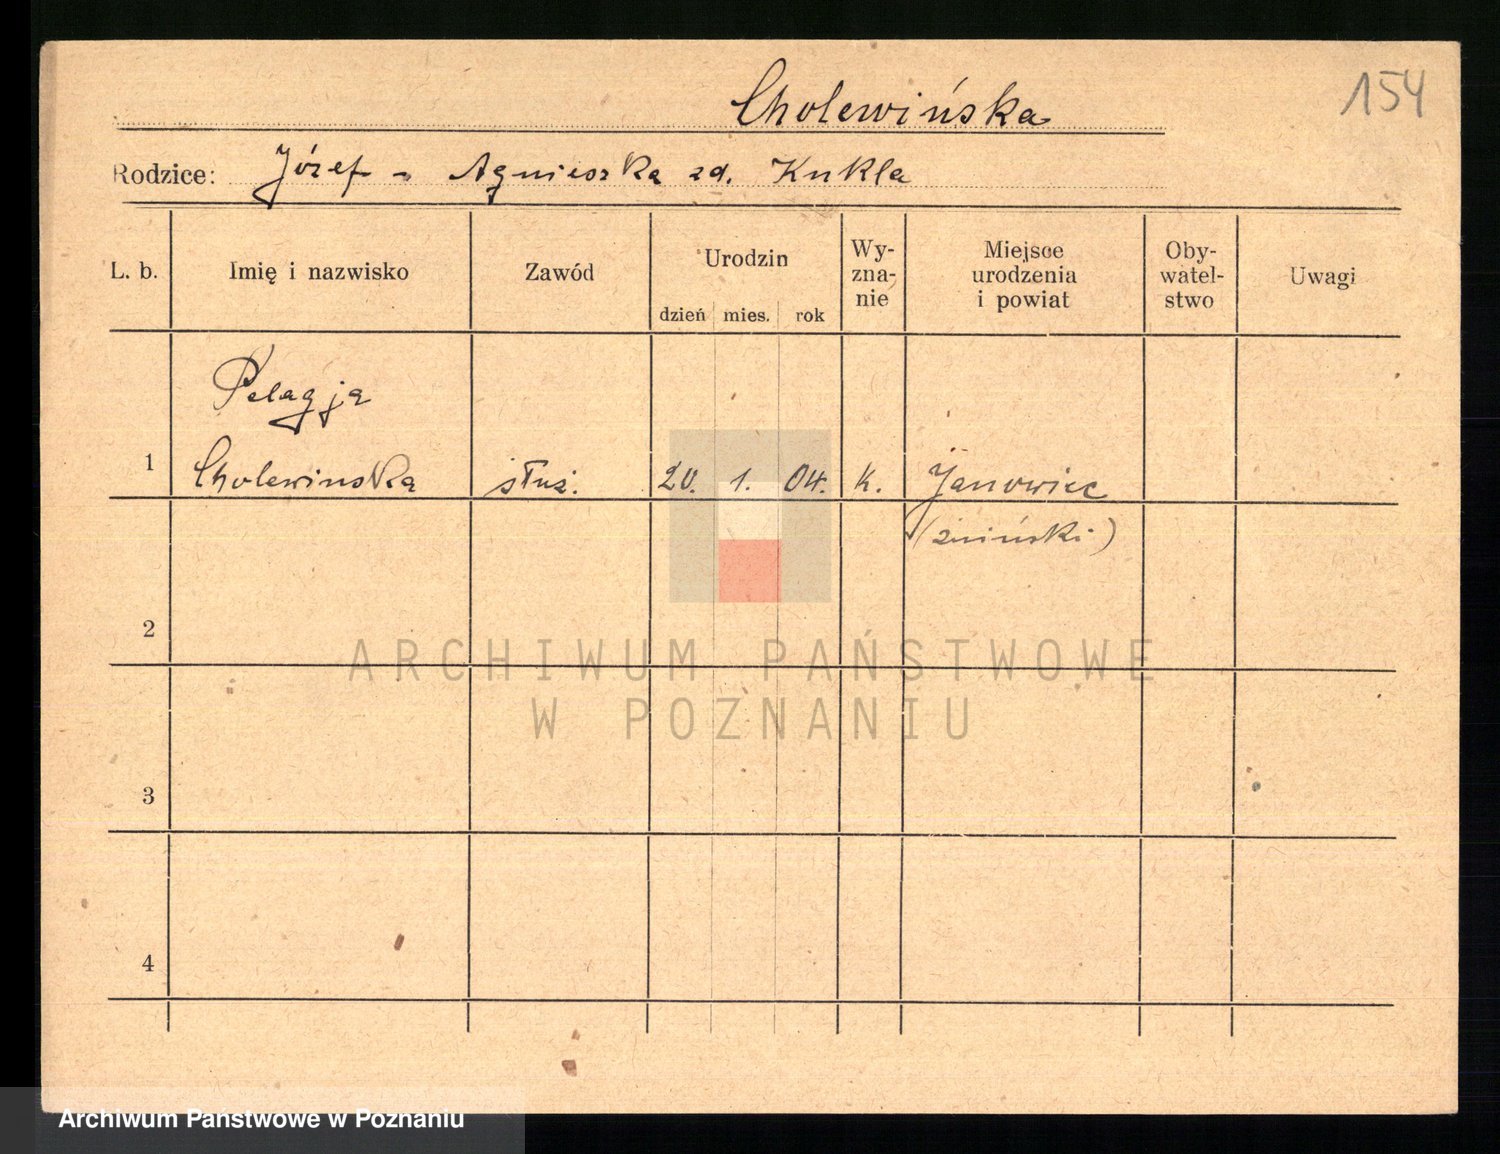 154
Cholewińska
Rodzice: Józef - Agnieszka zd. Kukla
L. b. Imię i nazwisko Zawód Urodzin Wy- Miejsce Oby- Uwagi
zna- urodzenia watel-
nie i powiat stwo
dzień mies. rok
Pelagja
1 Cholewinska służ. 20. 1. 04. k. Janowiec
(żniński)
2
3
4
ARCHIWUM PAŃSTWOWE
W POZNANIU
Archiwum Państwowe w Poznaniu